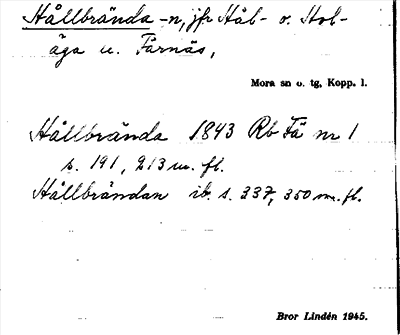 Hållbrända -n, jfr Hål- o. Hol-
äga u. Färnäs,
Mora sn o. tg, Kopp. l.
Hållbrända 1843 Rb Fä nr 1
s. 191, 213 m. fl.
Hållbrändan ib. s. 337, 350 m. fl.
Bror Lindén 1945.